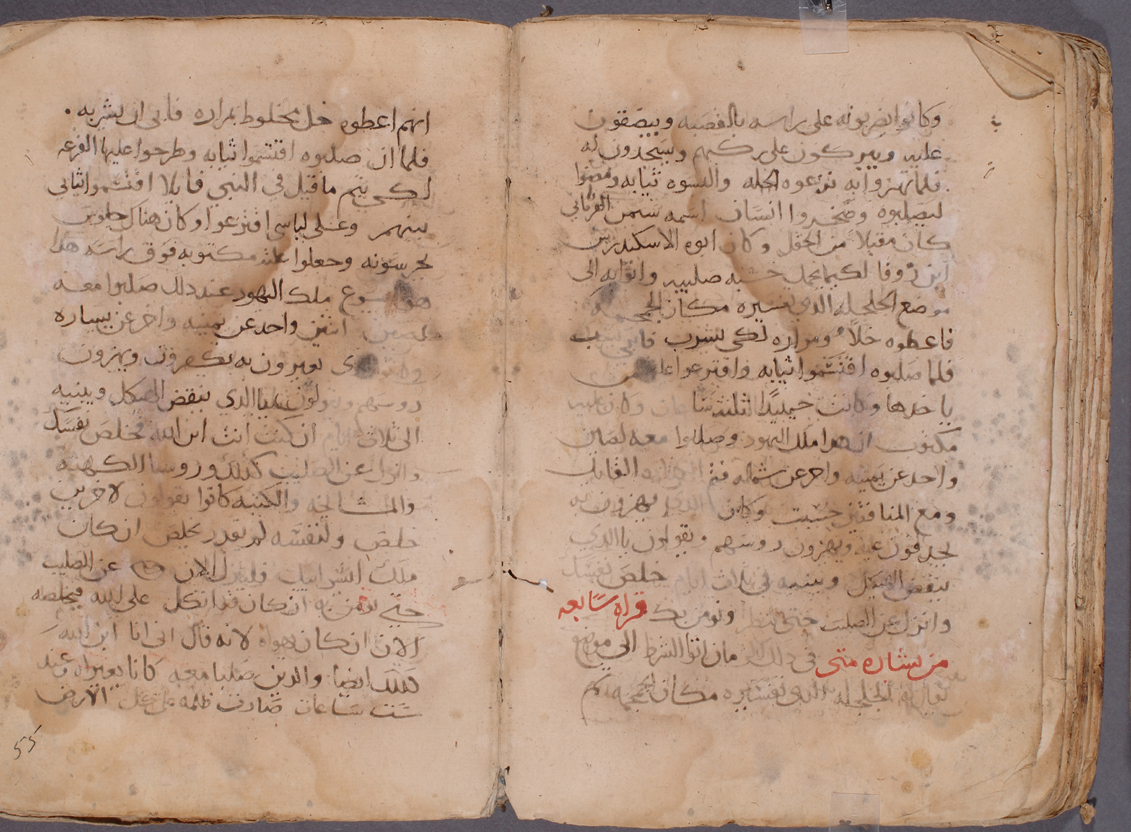 وكانوا يضربونه على راسه بالقصبه ويبصقون
عليه ويبركون على ركبهم ويسجدون له
فلما تهزوا به نزعوه الحله والبسوه ثيابه ومضوا
ليصلبوه وسخروا انسان اسمه سمعن القرناني
كان مقبلا من الحقل وكان ابوه الاسكندرس
ابن روفا لكيما يحمل خشبة صليبه واتوا به الى
موضع الجلجله الذي تفسيره مكان الجمجمه
فاعطوه خلا ومراره لكي يشرب فابى
فلما صلبوه اقتسموا ثيابه واقترعوا على من
ياخدها وكانت حينيدا ثلث ساعات وكان
مكتوب ان هوا ملك اليهود وصلبوا معه لصين
واحد عن يمينه واخر عن شماله فتم القايل
ومع المنافقين حسبت وكان يهزون به
يجدفون عليه ويهزون روسهم ويقولون يا الدي
ينقض الهيكل ويبنيه في ثلاث ايام خلص نفسك
وانزل عن الصليب حتى ننظر ونومن بك قراه سابعه
من بشاره متى في دلك الزمان اتوا الشرط الى موضع
يقال له الجلجله الذي تفسيره مكان الجمجمه
انهم اعطوه خل مخلوط بمراره فابى ان يشربه .
فلما ان صلبوه اقتسموا ثيابه وطرحوا عليها القرعه
لكي يتم ما قيل في النبي قايلا اقتسموا ثيابي
بينهم وعلى لباسي اقترعوا وكان هناك جلوس
يحرسونه وجعلوا علته مكتوبه فوق راسه هدا
هو يسوع ملك اليهود عند دلك صلبوا معه
لصين اثنين واحد عن يمينه واخر عن يساره
يعبرون به يكفرون ويهزون
روسهم ويقولون يا الدي ينقض الهيكل ويبنيه
الى ثلاث ايام ان كنت انت ابن الله فخلص نفسك
وانزل عن الصليب كدلك وروسا الكهنه
والمشايخه والكتبه كانوا يقولون لاخرين
خلص ولنفسه لم يقدر يخلص ان كان
ملك اسرائيل فلينزل الان عن الصليب
حتى نومن به ان كان قد اتكل على الله فيخلصه
الان ان كان يهواه لانه قال اني انا ابن الله
كدلك ايضا والدين صلبا معه كانا يعيراه وعند
ست ساعات صارت ظلمه على كل الارض
55